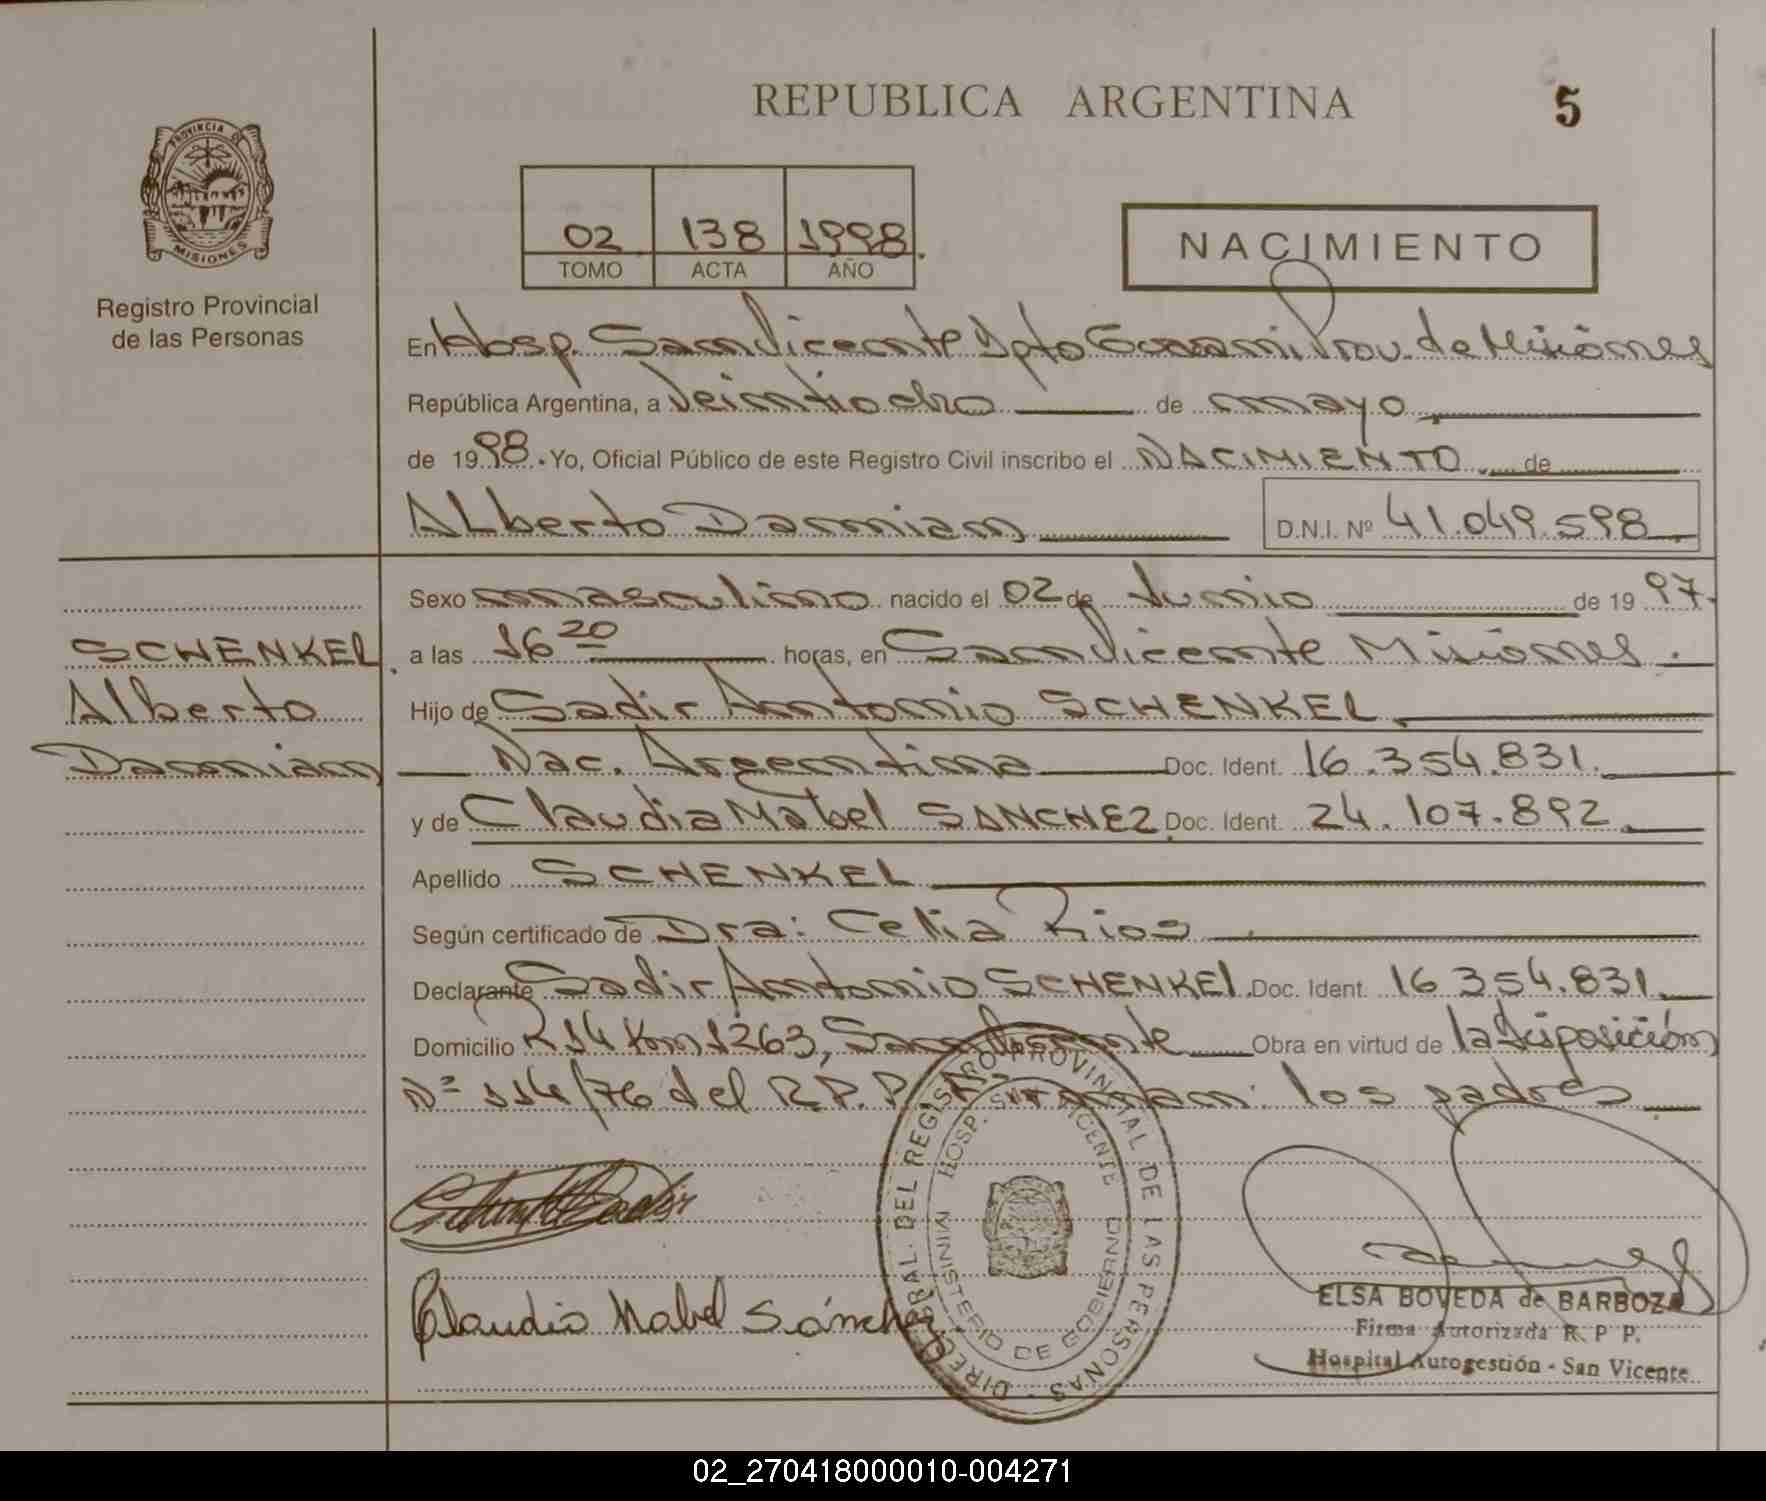 REPUBLICA ARGENTINA
5
PROVINCIA DE
MISIONES
Registro Provincial
de las Personas
02 138 1998.
TOMO ACTA AÑO
NACIMIENTO
En Hosp. San Vicente Dpto Guarani Prov. de Misiones
República Argentina, a Veintiocho de mayo
de 1998. Yo, Oficial Público de este Registro Civil inscribo el NACIMIENTO de
Alberto Damian D.N.I. Nº 41.049.598
Sexo masculino nacido el 02 de Junio de 1997.
SCHENKEL
Alberto
Damian
a las 16 20 horas, en San Vicente Misiones.
Hijo de Sadir Antonio SCHENKEL
Nac. Argentina Doc. Ident. 16.354.831.
y de Claudia Mabel SANCHEZ Doc. Ident. 24.107.892.
Apellido SCHENKEL
Según certificado de Dra: Celia Rios
Declarante Sadir Antonio SCHENKEL Doc. Ident. 16.354.831.
Domicilio R 14 Km 1263, San Vicente Obra en virtud de la disposición
Nº 114/76 del R.P.P. Firman: los padres
DIREC. GRAL. DEL REGISTRO PROVINCIAL DE LAS PERSONAS
HOSP. SAN VICENTE
MINISTERIO DE GOBIERNO
Claudia Mabel Sánchez
ELSA BOVEDA de BARBOZA
Firma Autorizada R. P P.
Hospital Autogestión - San Vicente
02_270418000010-004271